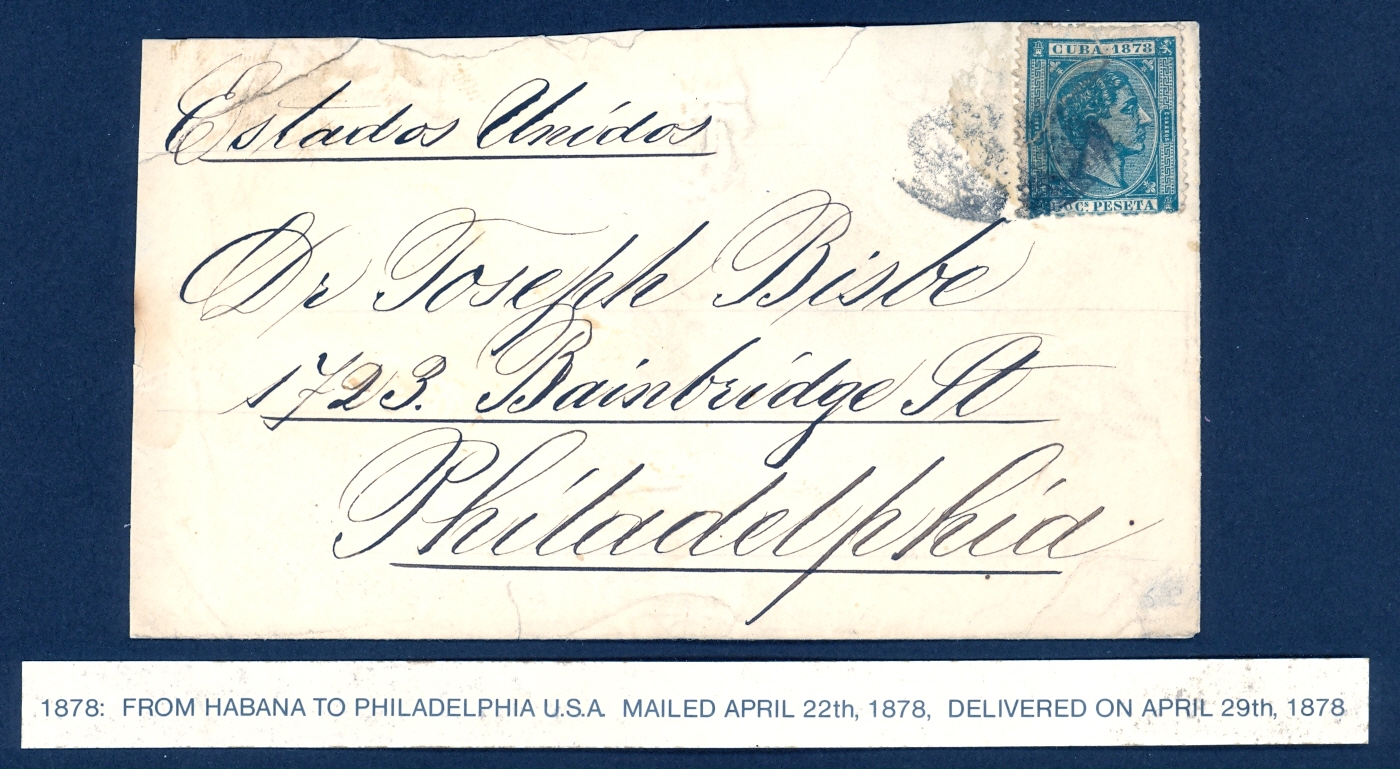 Estados Unidos
CUBA 1878
Cs PESETA
Dr Joseph Bisbe
1723. Bainbridge St
Philadelphia.
1878: FROM HABANA TO PHILADELPHIA U.S.A. MAILED APRIL 22th, 1878, DELIVERED ON APRIL 29th, 1878